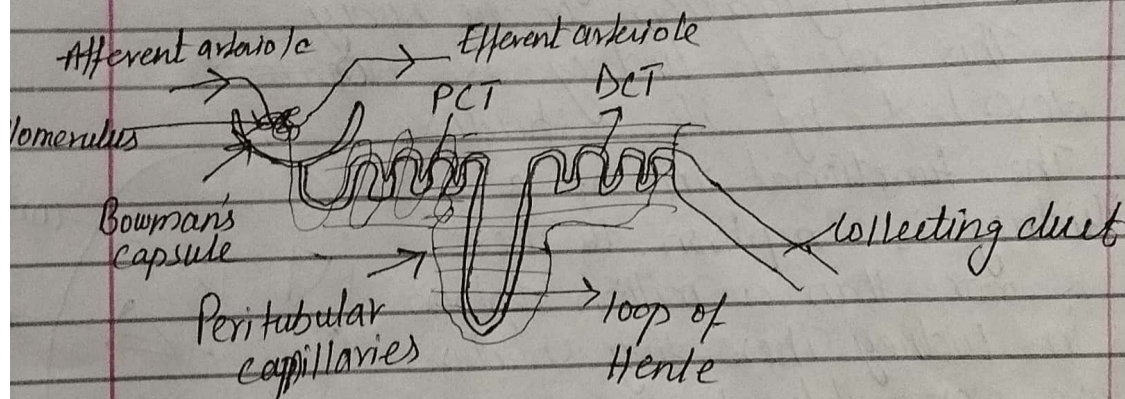 Afferent arteriole
Efferent arteriole
PCT
DCT
lomerulus
Bowman's
capsule
collecting duct
Peritubular
capillaries
loop of
Henle